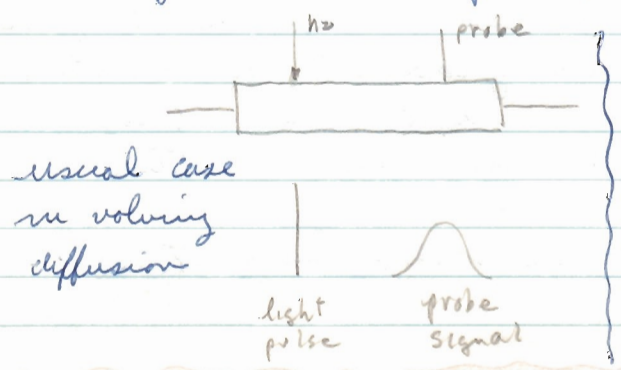 hν probe
usual case
involving
diffusion
light probe
pulse signal